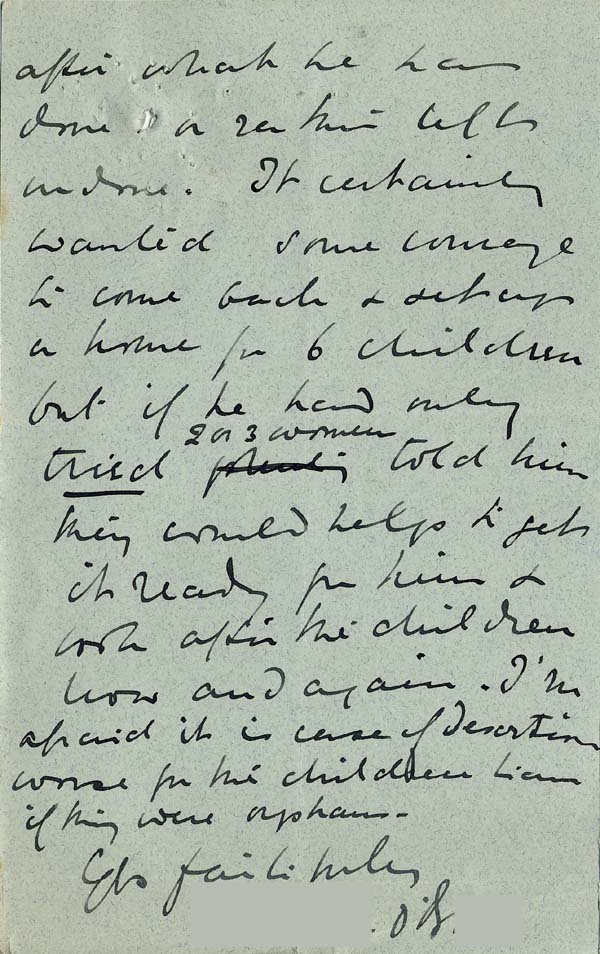 after what he has
done or rather left
undone. It certainly
wanted some courage
to come back & set up
a home for 6 children
but if he had only
2 or 3 women
tried told him
they would help to get
it ready for him &
look after the children
now and again. I'm
afraid it is case of desertion
worse for the children than
if they were orphans.
Yrs faithfully